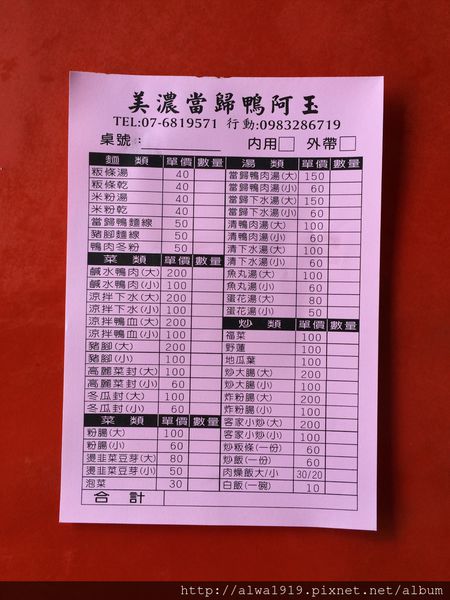 美濃當歸鴨阿玉
TEL:07-6819571 行動:0983286719
桌號: 內用 外帶
麵類 單價 數量
粄條湯 40
粄條乾 40
米粉湯 40
米粉乾 40
當歸鴨麵線 50
豬腳麵線 50
鴨肉冬粉 50
菜類 單價 數量
鹹水鴨肉(大) 200
鹹水鴨肉(小) 100
涼拌下水(大) 200
涼拌下水(小) 100
涼拌鴨血(大) 200
涼拌鴨血(小) 100
豬腳(大) 200
豬腳(小) 100
高麗菜封(大) 100
高麗菜封(小) 60
冬瓜封(大) 100
冬瓜封(小) 60
菜類 單價 數量
粉腸(大) 100
粉腸(小) 60
燙韭菜豆芽(大) 80
燙韭菜豆芽(小) 50
泡菜 30
合計
湯類 單價 數量
當歸鴨肉湯(大) 150
當歸鴨肉湯(小) 60
當歸下水湯(大) 150
當歸下水湯(小) 60
清鴨肉湯(大) 100
清鴨肉湯(小) 60
清下水湯(大) 100
清下水湯(小) 60
魚丸湯(大) 100
魚丸湯(小) 60
蛋花湯(大) 80
蛋花湯(小) 50
炒類 單價 數量
福菜 100
野蓮 100
地瓜葉 100
炒大腸(大) 200
炒大腸(小) 100
炸粉腸(大) 200
炸粉腸(小) 100
客家小炒(大) 200
客家小炒(小) 100
炒粄條(一份) 60
炒飯(一份) 60
肉燥飯大/小 30/20
白飯(一碗) 10
http://alwa1919.pixnet.net/album